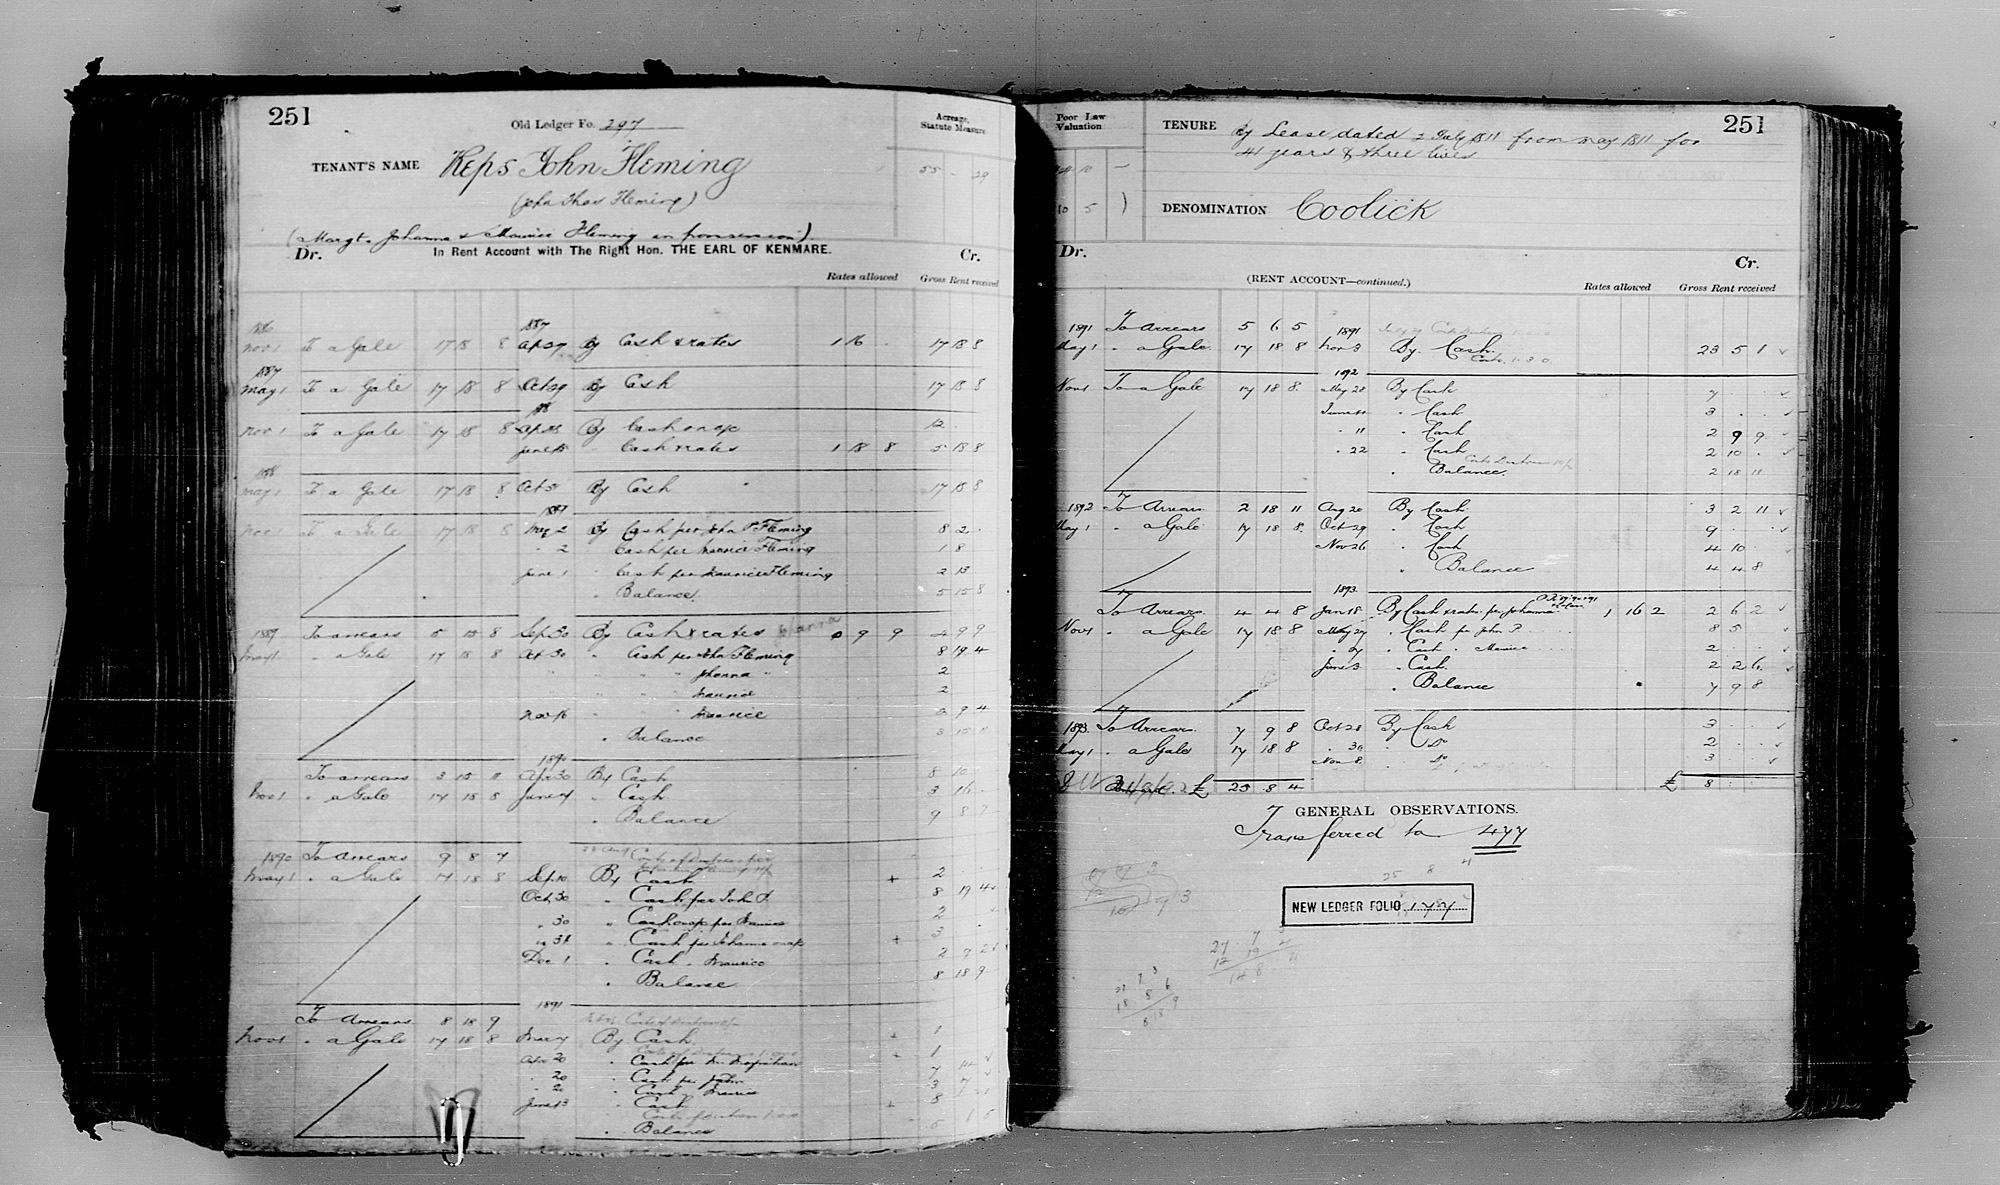 251
Old Ledger Fo. 297
Acreage,
Statute Measure
TENANT'S NAME Reps John Fleming
55 - 29
(John Thos Fleming)
(Margt. Johanna & Maurice Fleming in possession)
Dr. In Rent Account with The Right Hon. THE EARL OF KENMARE. Cr.
Rates allowed Gross Rent received
1887
Nov 1 To a Gale 17 18 8 Ap 27 By Cash & rates 1 16 . 17 18 8
1887
May 1 To a Gale 17 18 8 Oct 29 By Cash 17 18 8
Nov 1 To a Gale 17 18 8 By Cash on ap 12
June 15 Cash & rates 1 18 8 5 18 8
May 1 To a Gale 17 18 8 Oct By Cash 17 18 8
1889
Nov 1 To a Gale 17 18 8 May 2 By Cash per John P Fleming 8 2 .
" 2 Cash per Maurice Fleming 1 8
June 1 " Cash per Maurice Fleming 2 13
" Balance 5 15 8
1889 To arrears 5 15 8 Sep 30 By Cash & rates Johanna 0 9 9 4 9 9
May 1 " a Gale 17 18 8 Oct 30 " Cash per John Fleming 8 19 4
" " " " Johanna " 2
" " " Maurice 2
Nov 16 " " Maurice 2 9 4
" Balance 3 15 11
1890
To arrears 3 15 11 Apr 30 By Cash 8 10
Nov 1 " a Gale 17 18 8 June 4 " Cash 3 16 .
" Balance 9 8 7
1890 To Arrears 9 8 7
May 1 " a Gale 17 18 8 Sep 10 By Cash + 2
Oct 30 " Cash per John P. 8 19 4
" 30 " Cash on ap per Maurice 2
" 31 " Cash per Johanna on ap + 3
Dec 1 " Cash " Maurice 2 9 4
" Balance 8 18 9
1891
To Arrears 8 18 9
Nov 1 " a Gale 17 18 8 Mar 4 By Cash + 1
Apr 20 " Cash per + 1
" 20 " Cash per John 7 14
" 20 " Cash " Maurice 3 7
June 13 " Cash + 8
" Balance 5 6 5
Poor Law
Valuation
TENURE By Lease dated 2 July 1811 from May 1811 for
41 years & three lives
251
10 5
DENOMINATION Coolick
Dr. Cr.
(RENT ACCOUNT—continued.)
Rates allowed Gross Rent received
1891 To Arrears 5 6 5 1891
May 1 " a Gale 17 18 8 Nov 3 By Cash 23 5 1
Costs 1. 3. 0.
1892
Nov 1 To a Gale 17 18 8 May 28 By Cash 7 . .
June " Cash 3 . .
" 11 " Cash 2 9 9
" 22 " Cash 2 10 .
" Balance 2 18 11
1892 To Arrears 2 18 11 Aug 20 By Cash 3 2 11
May 1 " a Gale 17 18 8 Oct 29 " Cash 9 . .
Nov 26 " Cash 4 10 .
" Balance 4 4 8
1893
To Arrears 4 4 8 Jan 18 By Cash & rates per Johanna 1 16 2 2 6 2
Nov 1 " a Gale 17 18 8 May 27 " Cash per John P. 8 5
" 27 " Cash " Maurice 2 . .
June 3 " Cash 2 2 6
" Balance 7 9 8
1893 To Arrears 7 9 8 Oct 28 By Cash 3 . .
May 1 " a Gale 17 18 8 " 30 " Do 2 . .
Nov 8 " Do 3 . .
£ 25 8 4 £ 8
GENERAL OBSERVATIONS.
Transferred to 477
25 8 4
NEW LEDGER FOLIO 177